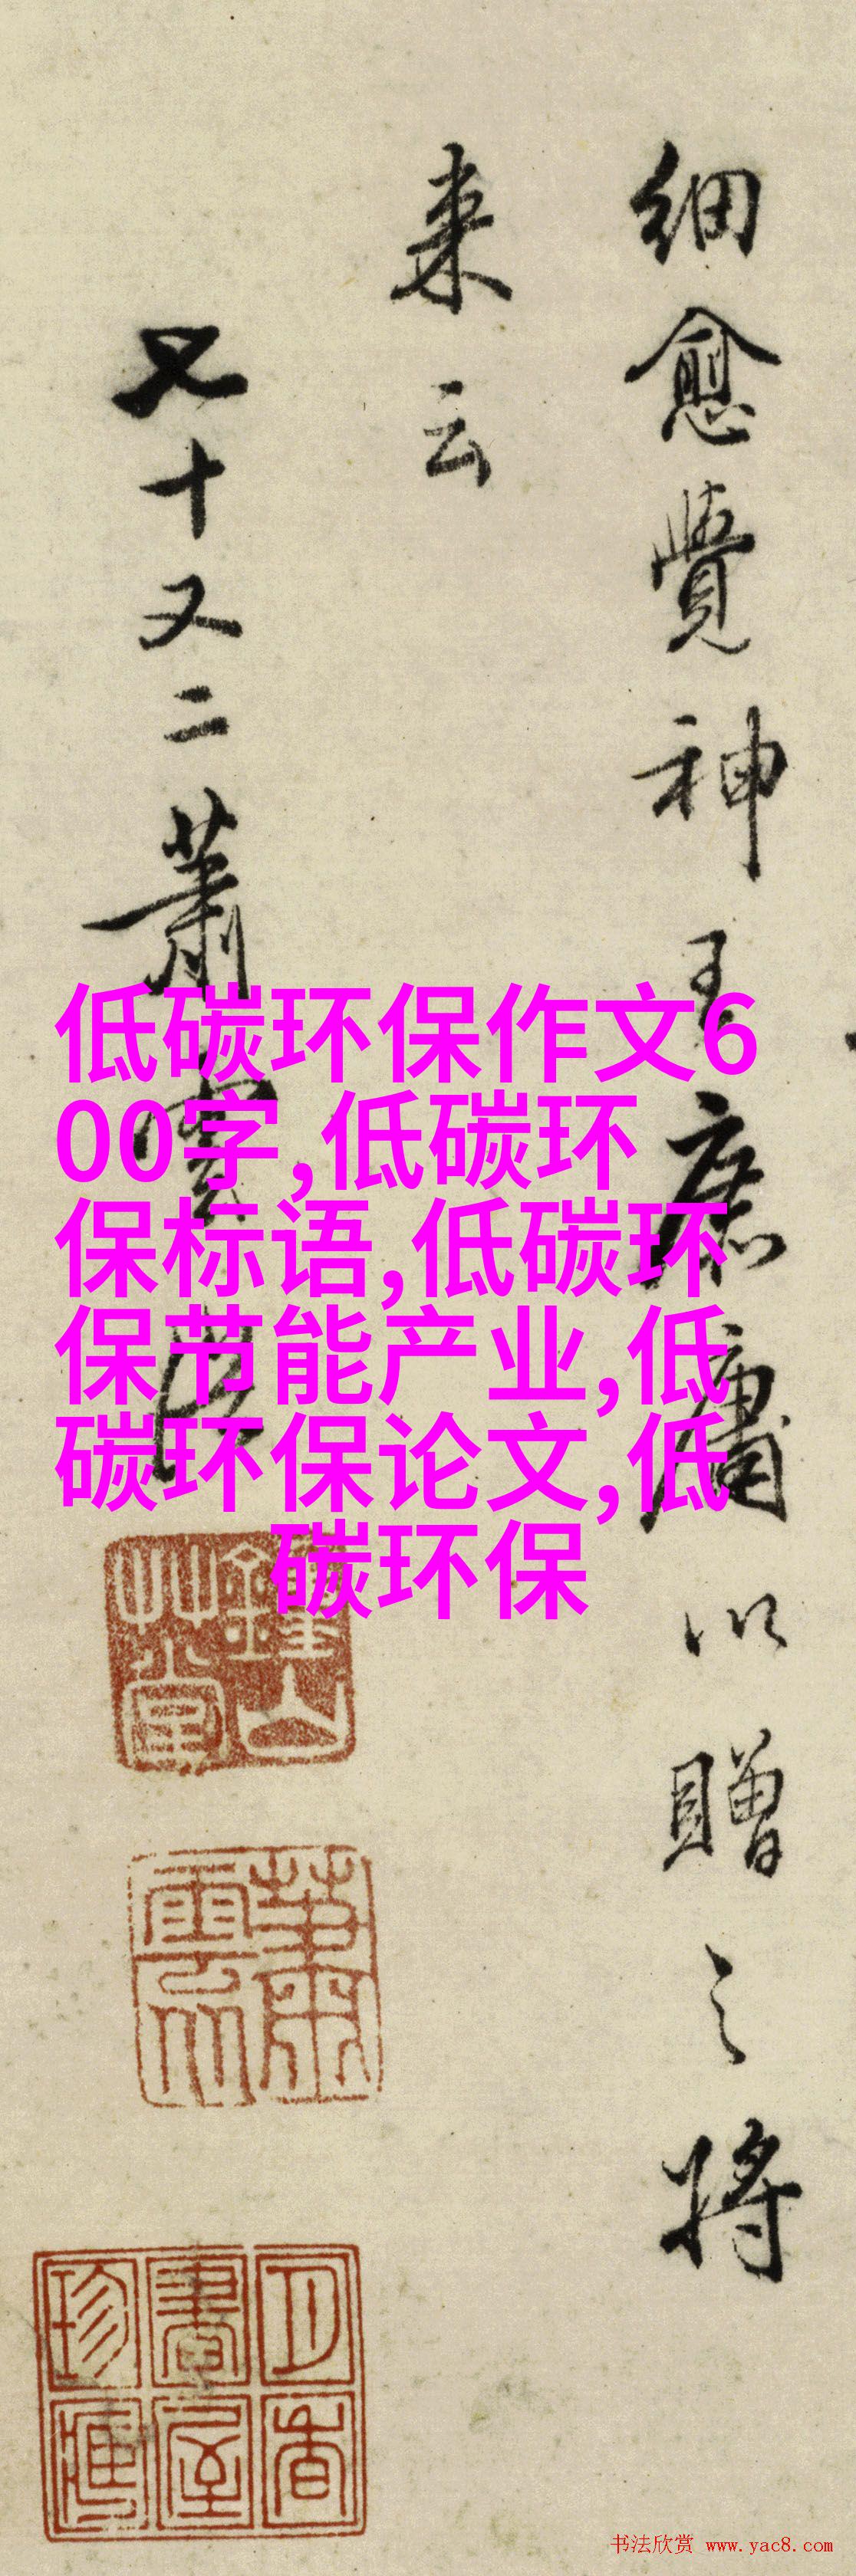 细愈覺神王庶庸以贈之將
来云
七十又二蕭雲從
低碳环保作文6
00字,低碳环
保标语,低碳环
保节能产业,低
碳环保论文,低
碳环保
鍾山艸堂
蕭雲從
书法欣赏 www.yac8.com